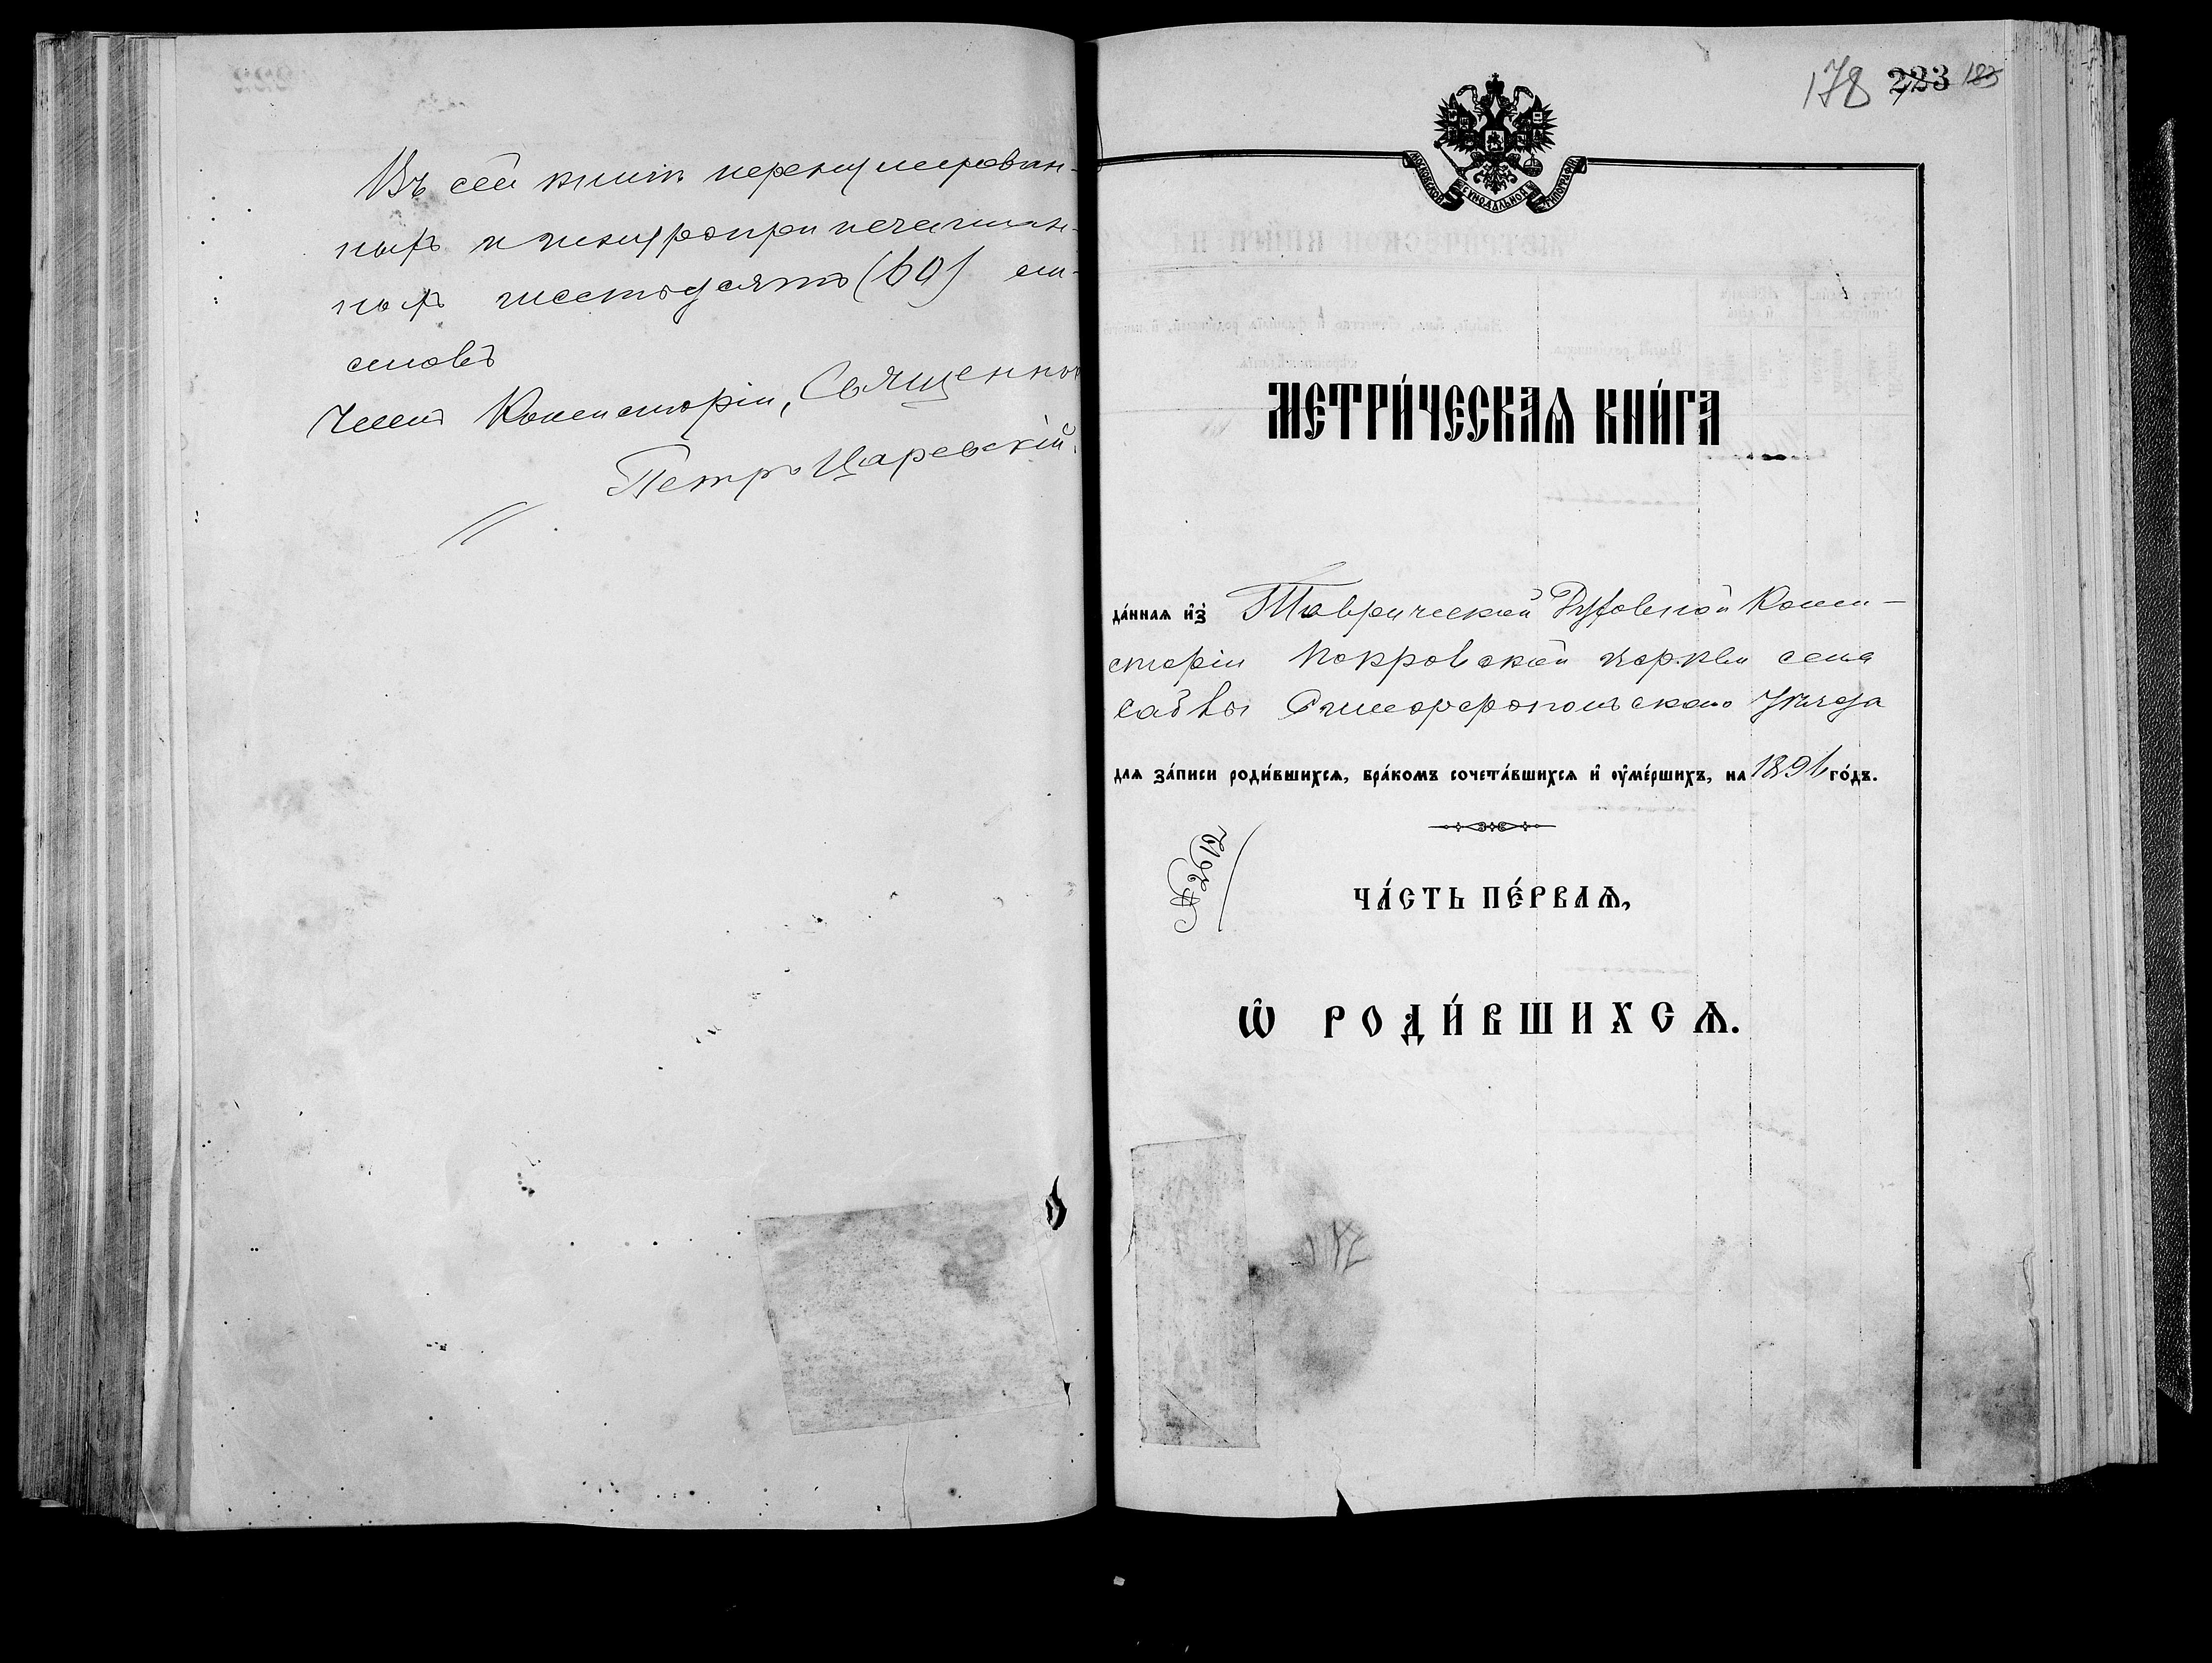 Въ сей книгѣ перенумерован-
ныхъ и шнуроприпечатан-
ныхъ шестьдесятъ (60) ли-
стовъ
Членъ Консисторіи, Священник
Петръ Царевскій.
178 223 183
МОСКОВСКОЙ СѴНОДАЛЬНОЙ ТИПОГРАФІИ
МЕТРИ́ЧЕСКАѦ КНИ́ГА
да́ннаѧ и҆з̾ Таврической Духовной Конси-
сторіи Покровской церкви села
Саблы Симферопольскаго Уѣзда
длѧ за́писи роди́вшихсѧ, бра́комъ сочета́вшихсѧ и҆ оу҆ме́ршихъ, на 1896 го́дъ.
ЧА́СТЬ ПЕ́РВАѦ,
Ѽ РОДИ́ВШИХСѦ.